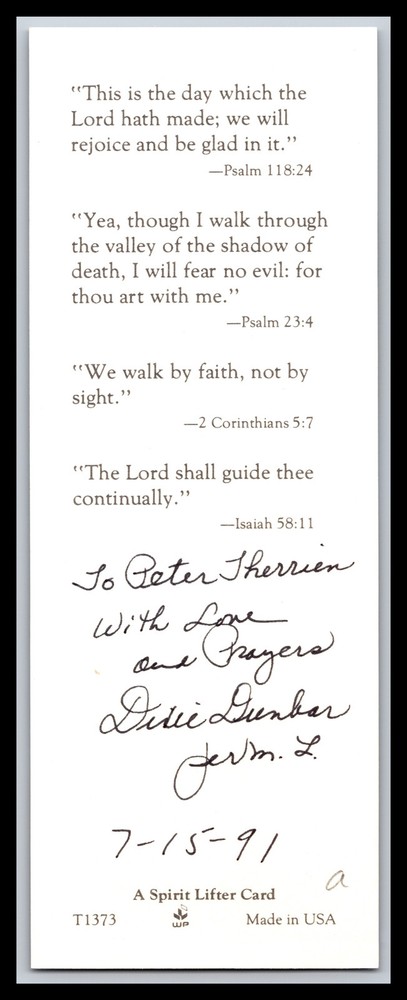 "This is the day which the
Lord hath made; we will
rejoice and be glad in it."
—Psalm 118:24
"Yea, though I walk through
the valley of the shadow of
death, I will fear no evil: for
thou art with me."
—Psalm 23:4
"We walk by faith, not by
sight."
—2 Corinthians 5:7
"The Lord shall guide thee
continually."
—Isaiah 58:11
To Peter Therrien
With Love
and Prayers
Dixie Dunbar
7-15-91
a
A Spirit Lifter Card
T1373
WP
Made in USA